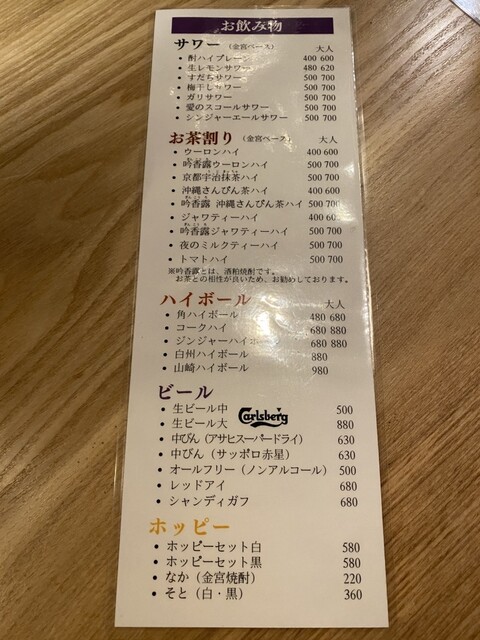 お飲み物
サワー（金宮ベース） 大人
• 酎ハイプレーン 400 600
• 生レモンサワー 480 620
• すだちサワー 500 700
• 梅干しサワー 500 700
• ガリサワー 500 700
• 愛のスコールサワー 500 700
• シンジャーエールサワー 500 700
お茶割り（金宮ベース） 大人
• ウーロンハイ 400 600
• 吟香露ウーロンハイ 500 700
• 京都宇治抹茶ハイ 500 700
• 沖縄さんぴん茶ハイ 400 600
• 吟香露 沖縄さんぴん茶ハイ 500 700
• ジャワティーハイ 400 600
• 吟香露ジャワティーハイ 500 700
• 夜のミルクティーハイ 500 700
• トマトハイ 500 700
※吟香露とは、酒粕焼酎です。
お茶との相性が良いため、お勧めしております。
ハイボール 大人
• 角ハイボール 480 680
• コークハイ 680 880
• ジンジャーハイボール 680 880
• 白州ハイボール 880
• 山崎ハイボール 980
ビール
• 生ビール中 500
Carlsberg
• 生ビール大 880
• 中びん（アサヒスーパードライ） 630
• 中びん（サッポロ赤星） 630
• オールフリー（ノンアルコール） 500
• レッドアイ 680
• シャンディガフ 680
ホッピー
• ホッピーセット白 580
• ホッピーセット黒 580
• なか（金宮焼酎） 220
• そと（白・黒） 360